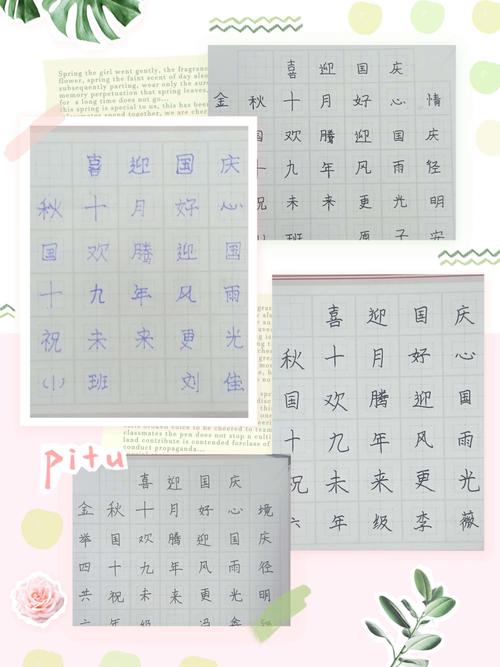 Spring the girl went gently, the fragran
flower, spring the faint scent of day also
subsequently parting, wear only the sure
memory perpetuation that spring leaves,
for a long time does not go...
this spring is special to us, this has been
喜迎国庆
金秋十月好心情
欢腾迎国庆
九年风雨径
祝未来更光明
班 原子安
喜迎国庆
秋十月好心
国欢腾迎国
十九年风雨
祝未来更光
(1)班 刘佳
喜迎国庆
秋十月好心
国欢腾迎国
十九年风雨
祝未来更光
六年级李薇
classmates the pen does not stop n culti
land contribute is contended forclass of
conduct propaganda...
pitu
喜迎国庆
金秋十月好心境
举国欢腾迎国庆
四十九年风雨径
共祝未来更光明
年级 冯